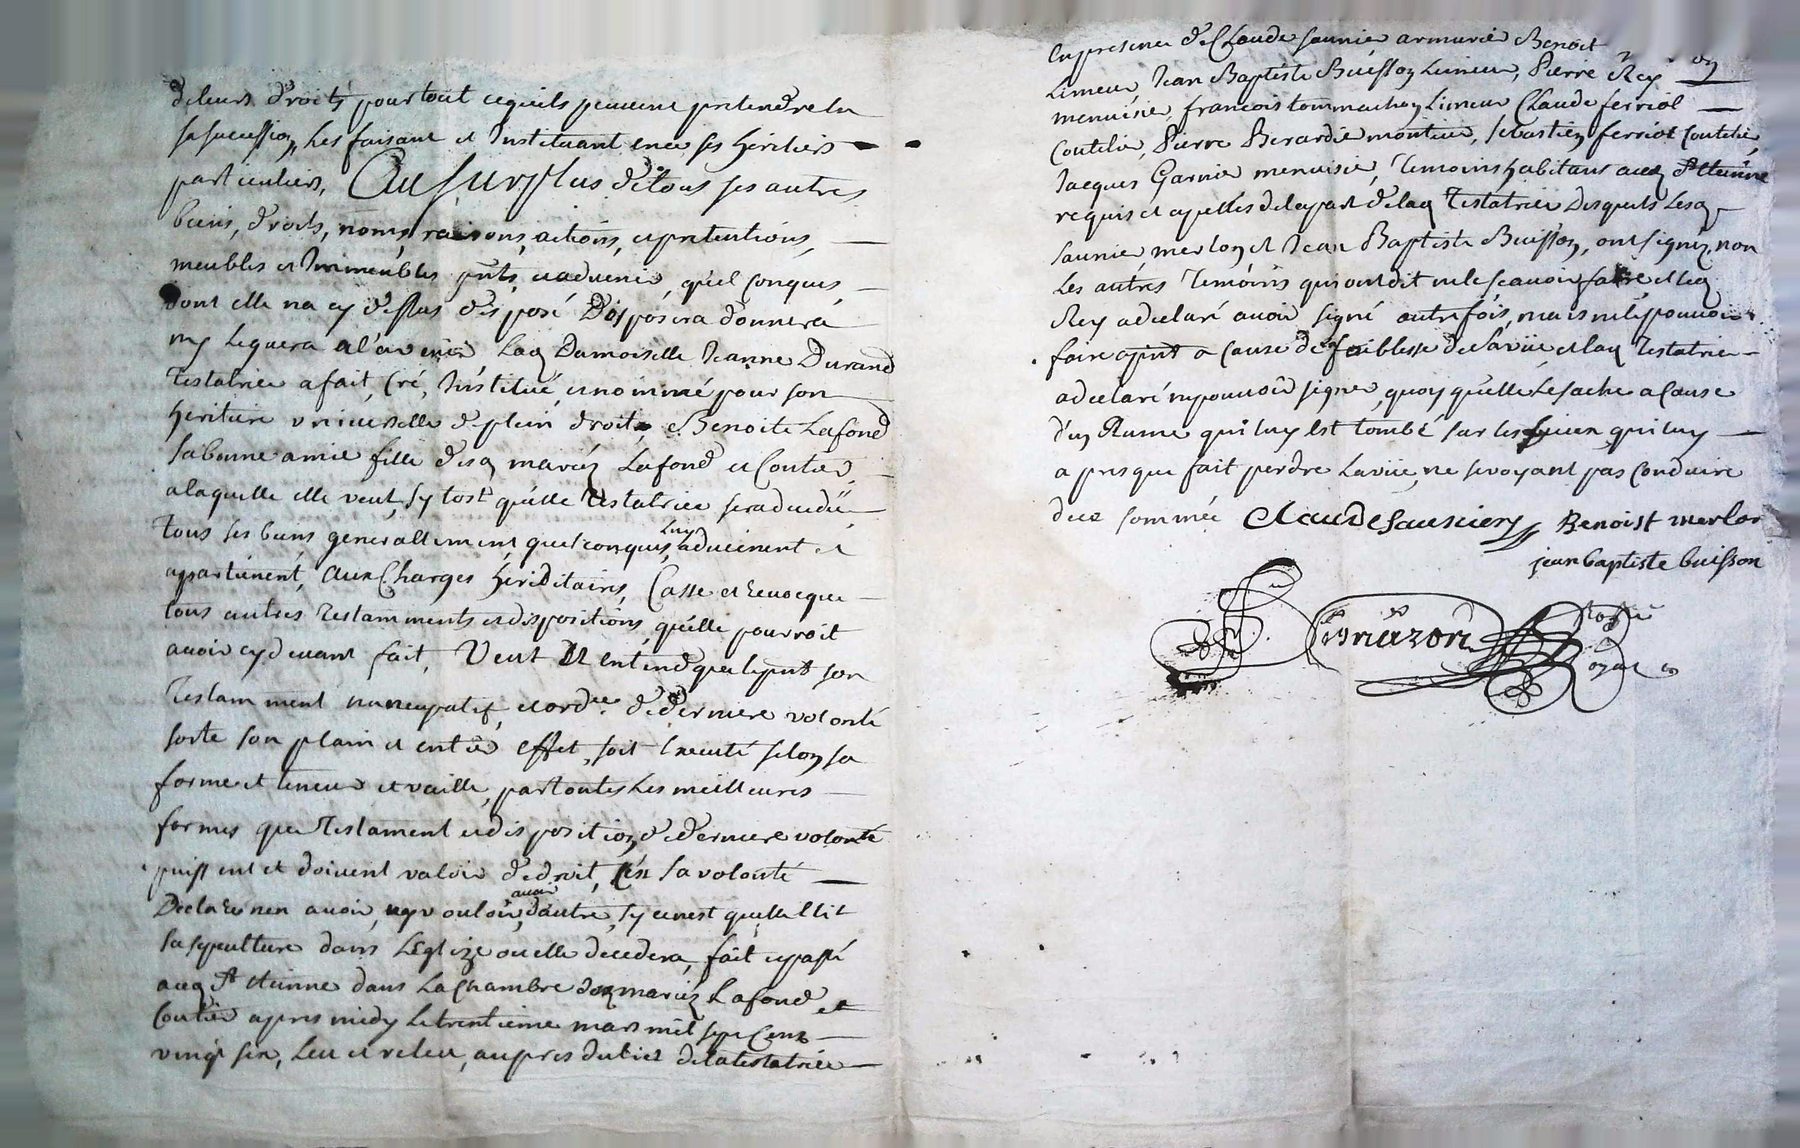 de leurs droits pour tout cequils peuvent pretendre en
sa succession, Les faisant et Instituant en ce ses héritiers
particuliers, Au Surplus de tous ses autres
biens, droits, noms, raisons, actions, et pretentions,
meubles et Immeubles pnts, et advenir, quel conques,
dont elle na cy dessus disposé Disposera donnera
ny Leguera a l'avenir Lad Damoiselle Jeanne Durand
Testatrice a fait, Cré, Institué, et nommé pour son
héritiere universelle de plein droit, Benoite Lafond
sa bonne amie fille desd mariéz Lafond et Coutier,
a laquelle elle veut, sy tost quélle Testatrice sera decedée
Tous ses biens generallement quelconques, Luy advienent et
appartienent, aux Charges héréditaires, Casse et Revocque
tous autres Testamments et dispositions, quélle pourroit
avoir cy devant fait, Veut Et entend que le pnt son
Testamment nuncupatif, et ordce de derniere volonté
sorte son plain et entier effet, soit Executé selon sa
forme et teneur et vaille, par toutes Les meilleures
formes que Testament et disposition de derniere volonté
puissent et doivent valoir de droit, C'en sa volonté
Declare nen avoir, ny vouloir, avoir d'autre, sy ce nest quelle Elit
sa sepulture dans L'Eglize ou elle decedera, fait et passé
aud St Etienne dans La chambre desd mariéz Lafond et
Coutier apres midy Le trentieme mars mil sept Cent
vingt six, Leu et releu, aupres du lict de la testatrice
En presence de Claude saunier armurier Benoit
Limeur, Jean Baptiste Buisson Limeur, Pierre Rey
menuisier, francois tommachon Limeur Claude ferriol
Coutelier, Pierre Berardier monteur, sebastien ferriol Coutelier,
Jacques Garnier menuisier, Temoins habitans aud St Etienne
requis et apellés de la part de lad Testatrice Desquels Lesd
saunier merlon et Jean Baptiste Buisson, ont signéz, non
Les autres Temoins qui ont dit ne le scavoir faire et led
Rey a declaré avoir signé autrefois, mais ne le pouvoir
faire a pnt a cause de la foiblesse de sa vüe et lad Testatrice
a declaré ny pouvoir signer, quoy quélle Le sache a Cause
d'un Rume qui luy Est tombé sur les yeux qui luy
a presque fait perdre La vüe, ne se voyant pas conduire
dece sommée Claude saunier, Benoist merlon
jean baptiste buisson